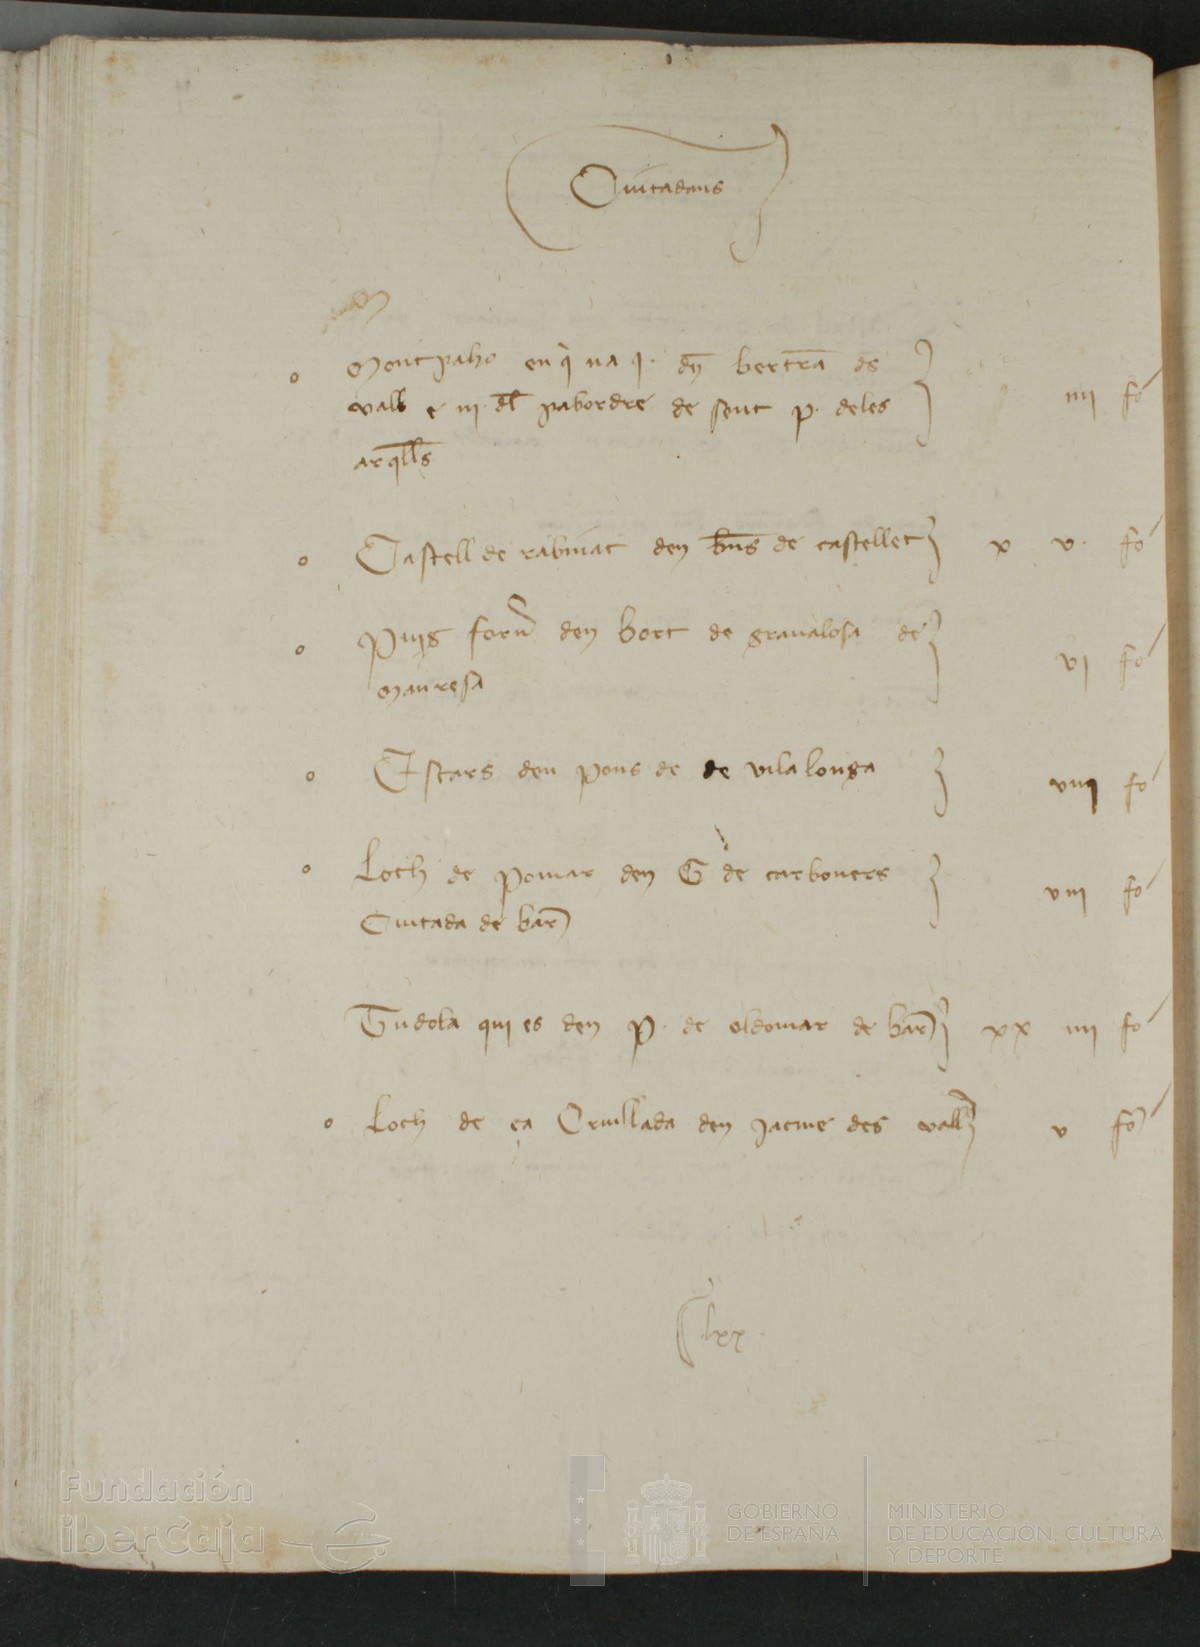 Ciutadans
Montpaho en q̄ na q. dn̄ bertrā des
valls e iij. dl̄ pabordre de sent p. deles
arq̄lls
iiij fo
Castell de rabinat den bn̄s de castellet
x v. fo
Puig forn̄ den bort de granalosa de
Manresa
vi fo
Estars den pons de de vilalonga
viiij fo
Loch de pomar den G de carboners
Ciutada de bar̄
viii fo
Tudola qui es den p. de oldomar de bar̄
xx iiij fo
Loch de ça Cruillada den jacme des vall
v fo
lxx
Fundación
iberCaja
GOBIERNO
DE ESPAÑA
MINISTERIO
DE EDUCACIÓN, CULTURA
Y DEPORTE